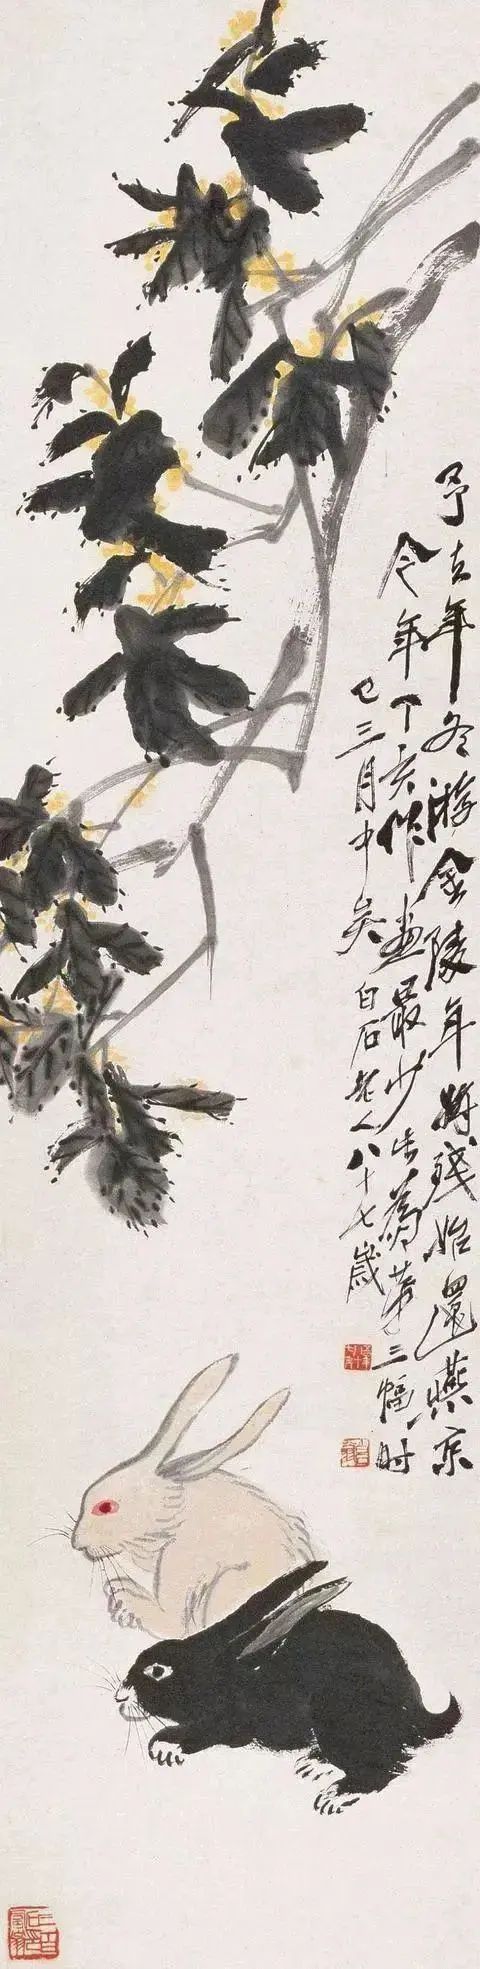 予去年冬游金陵年将残始還燕京
今年丁亥作畫最少此為苐三幅时
已三月中矣白石老人八十七歲